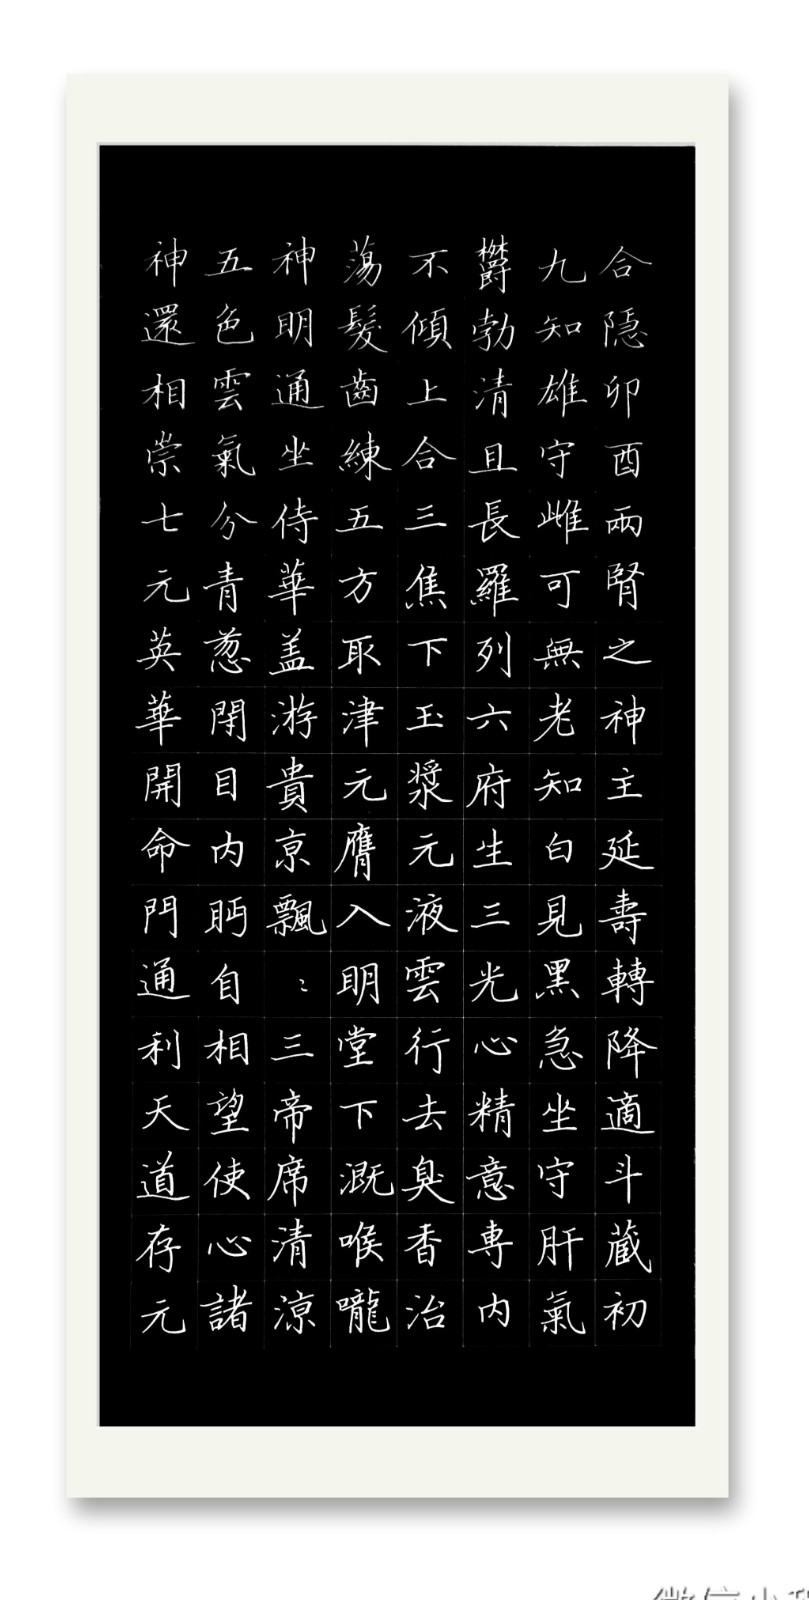 合隱卯酉兩腎之神主延壽轉降適斗藏初
九知雄守雌可無老知白見黑急坐守肝氣
欝勃清且長羅列六府生三光心精意専内
不傾上合三焦下玉漿元液雲行去臭香治
蕩髮齒練五方取津元膺入明堂下溉喉嚨
神明通坐侍華盖游貴京飄〻三帝席清涼
五色雲氣分青葱閉目内眄自相望使心諸
神還相崇七元英華開命門通利天道存元